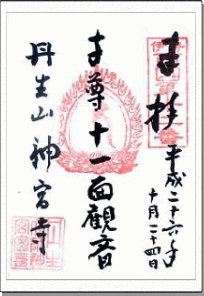 奉拝
平成二十六年
十月二十四日
本尊十一面観音
丹生山神宮寺